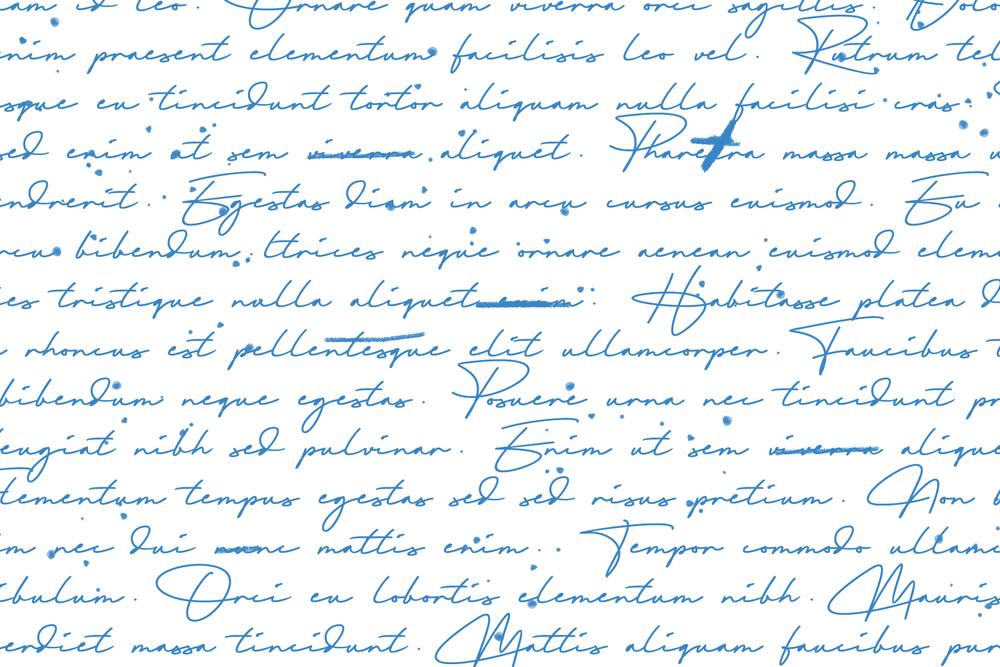 am id leo. Ornare quam viverra orci sagittis. Dolo
enim praesent elementum facilisis leo vel. Rutrum tel
sque eu tincidunt tortor aliquam nulla facilisi cras.
sed enim at sem viverra aliquet. Pharetra massa massa u
endrerit. Egestas diam in arcu cursus euismod. Eu
rcu bibendum. ltrices neque ornare aenean euismod eleme
es tristique nulla aliquet enim. Habitasse platea d
rhoncus est pellentesque elit ullamcorper. Faucibus t
bibendum neque egestas. Posuere urna nec tincidunt pr
eugiat nibh sed pulvinar. Enim ut sem viverra alique
ementum tempus egestas sed sed risus pretium. Non b
im nec dui nunc mattis enim. Tempor commodo ullamc
ibulum. Orci eu lobortis elementum nibh. Mauris
erdiet massa tincidunt. Mattis aliquam faucibus pur